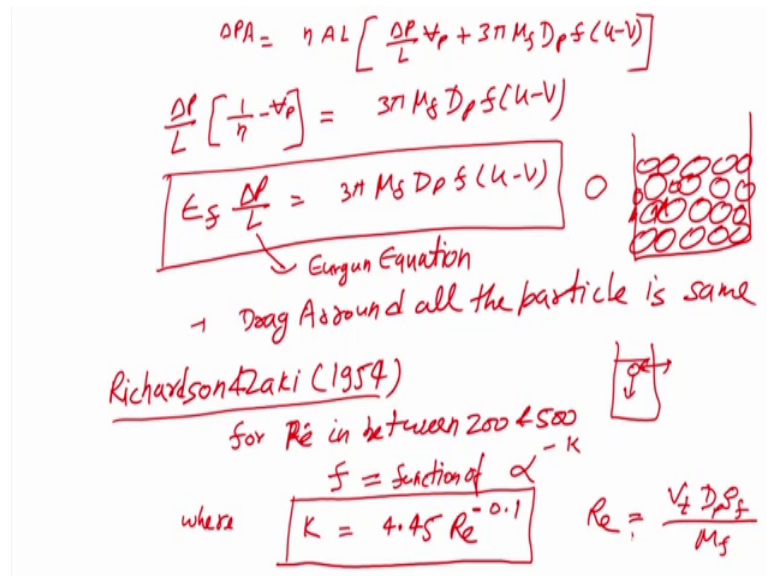 ΔPA = η A L [ ΔP/L ∀p + 3π μf Dp f (u-v) ]
ΔP/L [ 1/η - ∀p ] = 3π μf Dp f (u-v)
εf ΔP/L = 3π μf Dp f (u-v)
Eurgun Equation
→ Drag Around all the particle is same
Richardson & Zaki (1954)
for Re in between 200 & 500
f = function of α^-K
where K = 4.45 Re^-0.1
Re = Vt Dp ρf / μf